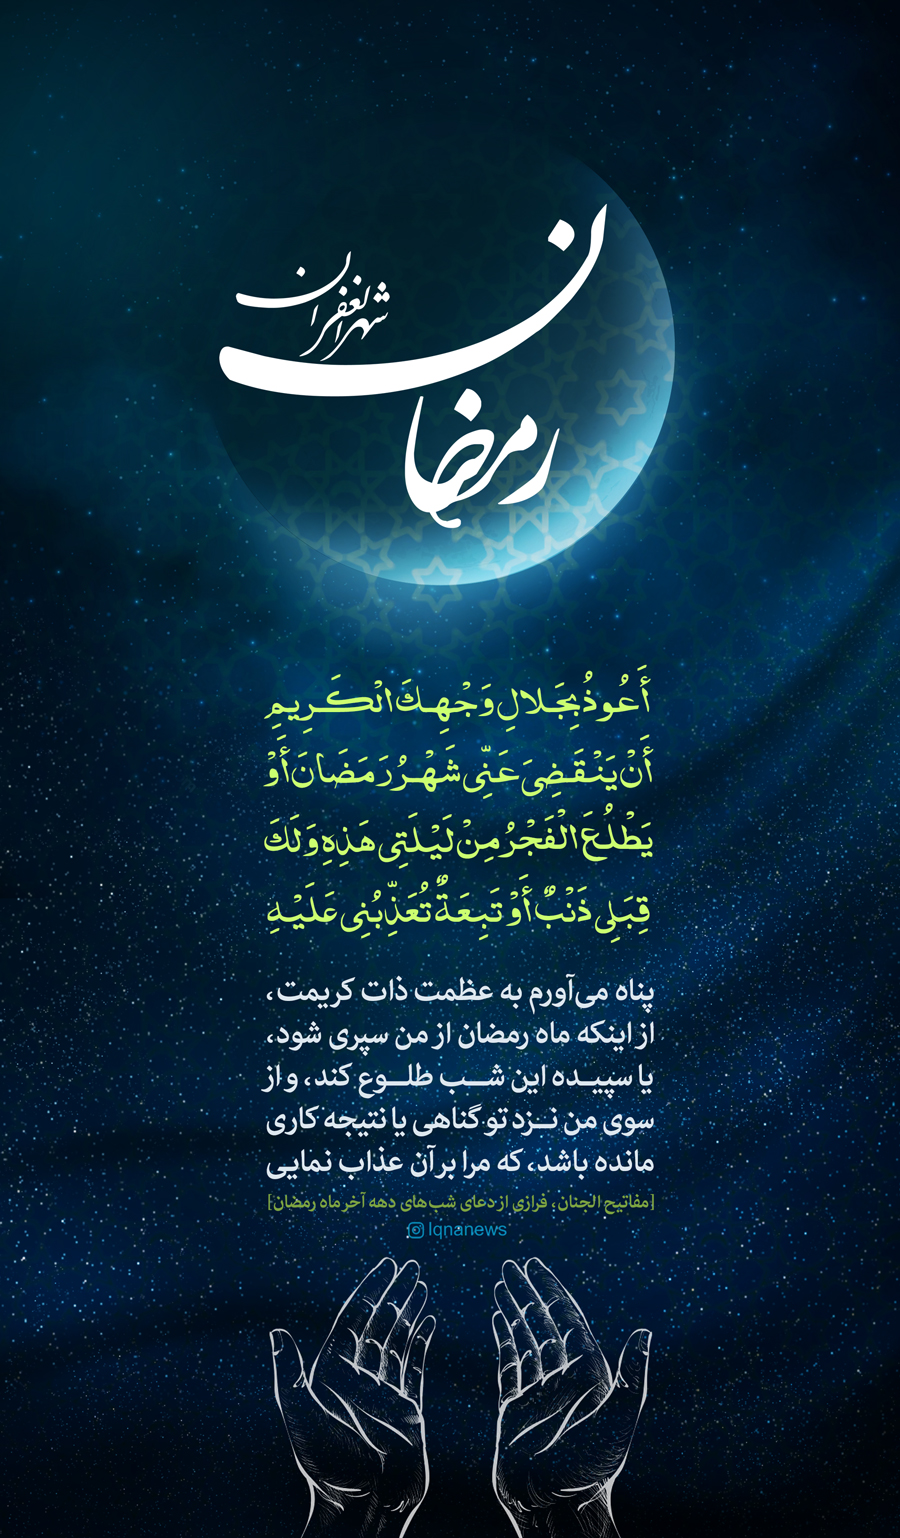 رمضان
شهر الغفران
أَعُوذُ بِجَلالِ وَجْهِكَ الْكَرِيمِ
أَنْ يَنْقَضِيَ عَنِّى شَهْرُ رَمَضانَ أَوْ
يَطْلُعَ الْفَجْرُ مِنْ لَيْلَتِى هَذِهِ وَ لَكَ
قِبَلِى ذَنْبٌ أَوْ تَبِعَةٌ تُعَذِّبُنِى عَلَيْهِ
پناه می‌آورم به عظمت ذات کریمت،
از اینکه ماه رمضان از من سپری شود،
یا سپیـده این شــب طلــوع کند، و از
سوی من نــزد تو گناهی یا نتیجه کاری
مانده باشد، که مرا بر آن عذاب نمایی
[مفاتیح الجنان، فرازی از دعای شب‌های دهه آخر ماه رمضان]
Iqnanews